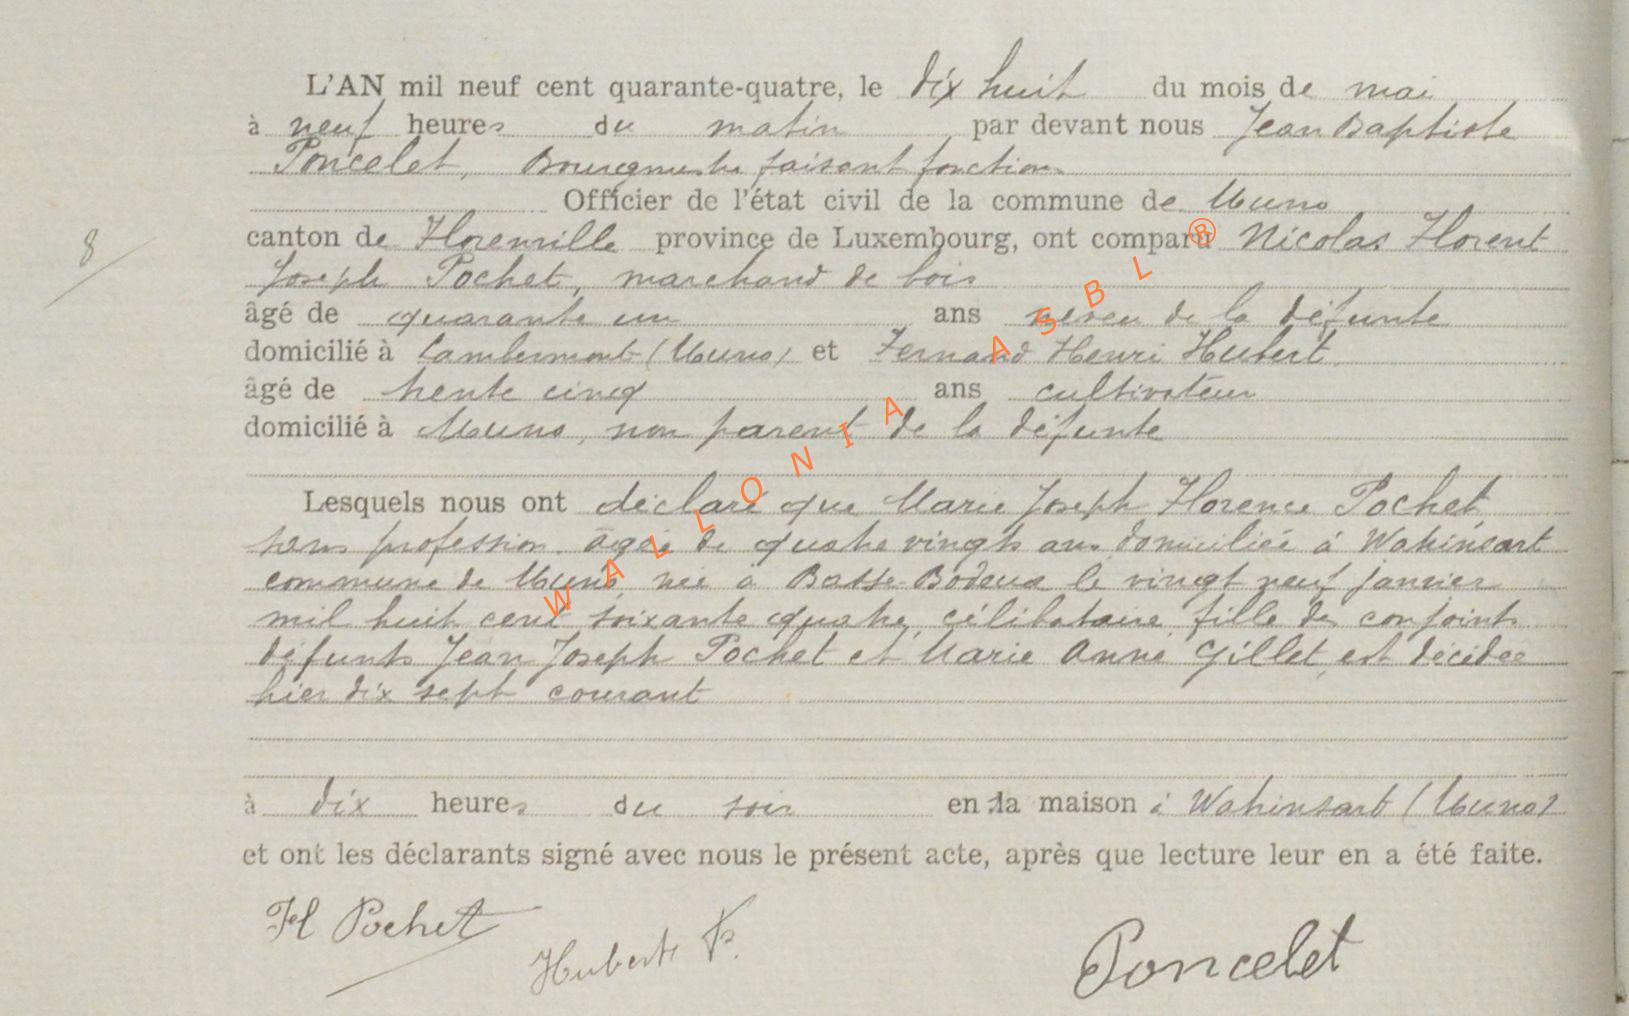 L'AN mil neuf cent quarante-quatre, le dix huit du mois de mai
à neuf heures du matin par devant nous Jean Baptiste
Poncelet, Bourgmestre faisant fonction
Officier de l'état civil de la commune de Muno
8
canton de Florenville province de Luxembourg, ont comparu Nicolas Florent
Joseph Pochet, marchand de bois
âgé de quarante un ans neveu de la défunte
domicilié à Lambermont (Muno) et Fernand Henri Hubert
âgé de trente cinq ans cultivateur
domicilié à Muno, non parent de la défunte
Lesquels nous ont déclaré que Marie Joseph Florence Pochet
sans profession. âgée de quatre vingts ans domiciliée à Watrinsart
commune de Muno, née à Basse-Bodeux le vingt neuf janvier
mil huit cent soixante quatre, célibataire, fille des conjoints
défunts Jean Joseph Pochet et Marie Anne Gillet, est décédée
hier dix sept courant
à dix heures du soir en la maison à Watrinsart (Muno)
et ont les déclarants signé avec nous le présent acte, après que lecture leur en a été faite.
Fl Pochet
Hubert F.
Poncelet
WALLONIA ASBL ®